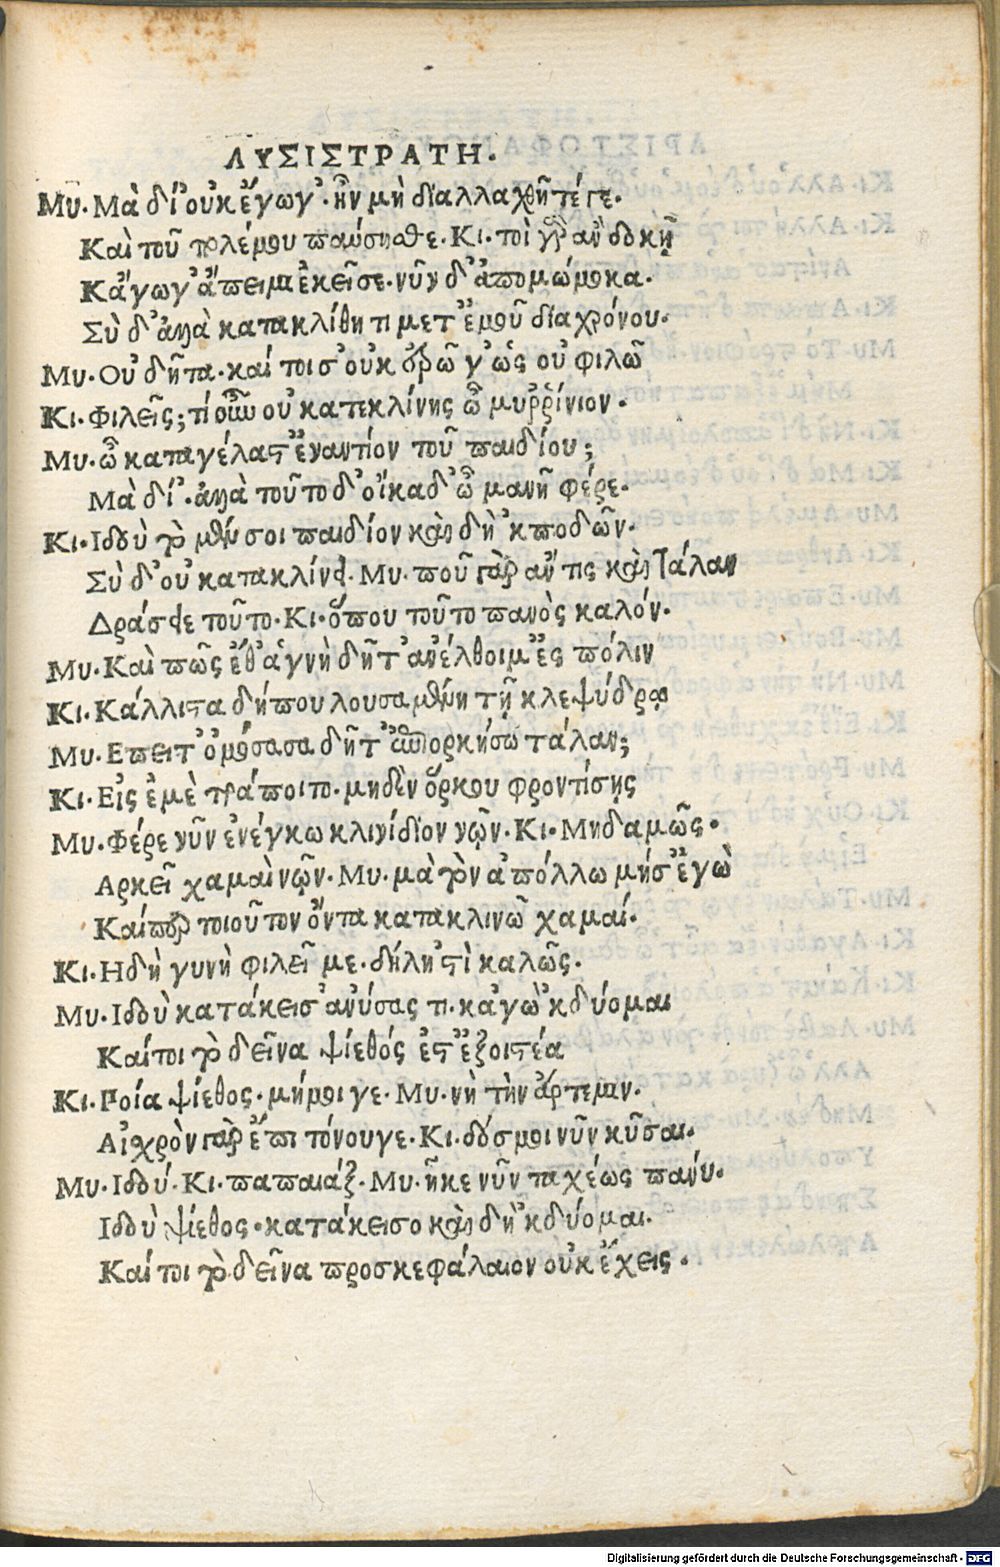 ΛΥΣΙΣΤΡΑΤΗ.
Μυ. Μὰ δί' οὐκ ἔγωγ'. ἢν μὴ διαλλαχθῆτέ γε.
Καὶ τοῦ πολέμου παύσησθε. Κι. τοὶ γὰρ ἂν δοκῇ
Κἄγωγ' ἄπειμι ἐκεῖσε. νῦν δ' ἀπομώμοκα.
Σὺ δ' ἀλλὰ κατακλίθητι μετ' ἐμοῦ διαχρόνου.
Μυ. Οὐ δῆτα. καί τοι σ' οὐκ ἐρῶ γ' ὡς οὐ φιλῶ
Κι. Φιλεῖς; τί οὖν οὐ κατεκλίνης ὦ μυῤῥίνιον.
Μυ. ὦ καταγέλαστ' ἐναντίον τοῦ παιδίου;
Μὰ δί'. ἀλλὰ τοῦτο δ' οἴκαδ' ὦ μανῆ φέρε.
Κι. Ιδοὺ τὸ μὲν σοι παιδίον καὶ δὴ 'κποδῶν.
Σὺ δ' οὐ κατακλίνει. Μυ. ποῦ γὰρ ἄν τις καὶ τάλαν
Δράσειε τοῦτο. Κι. ὅπου τοῦτο πανὸς καλόν.
Μυ. Καὶ πῶς ἔθ' ἁγνὴ δῆτ' ἀνέλθοιμ' ἐς πόλιν
Κι. Κάλλιστα δήπου λουσαμένη τῇ κλεψύδρᾳ
Μυ. Επειτ' ὀμόσασα δῆτ' ἐπιορκήσω τάλαν;
Κι. Εἰς ἐμὲ τράποιτο. μηδὲν ὅρκου φροντίσῃς
Μυ. Φέρε νῦν ἐνέγκω κλινίδιον νῷν. Κι. Μηδαμῶς.
Αρκεῖ χαμαὶ νῷν. Μυ. μὰ τὸν ἀπόλλω μήσ' ἐγὼ
Καίπερ τοιοῦτον ὄντα κατακλινῶ χαμαί.
Κι. Ηδὴ γυνὴ φιλεῖ με. δήλη 'στὶ καλῶς.
Μυ. Ιδοὺ κατάκεισ' ἀνύσας τι. κἀγὼ 'κδύομαι
Καίτοι τὸ δεῖνα ψίεθός ἐστ' ἐξοιστέα
Κι. Ροία ψίεθος. μήμοι γε. Μυ. νὴ τὴν ἄρτεμιν.
Αἰσχρὸν γὰρ ἔπι τόνουγε. Κι. δόσμοι νῦν κῦσαι.
Μυ. Ιδού. Κι. παπαιάξ. Μυ. ἧκε νῦν ταχέως πάνυ.
Ιδοὺ ψίεθος. κατάκεισο καὶ δὴ 'κδύομαι.
Καίτοι τὸ δεῖνα προσκεφάλαιον οὐκ ἔχεις.
Digitalisierung gefördert durch die Deutsche Forschungsgemeinschaft - DFG